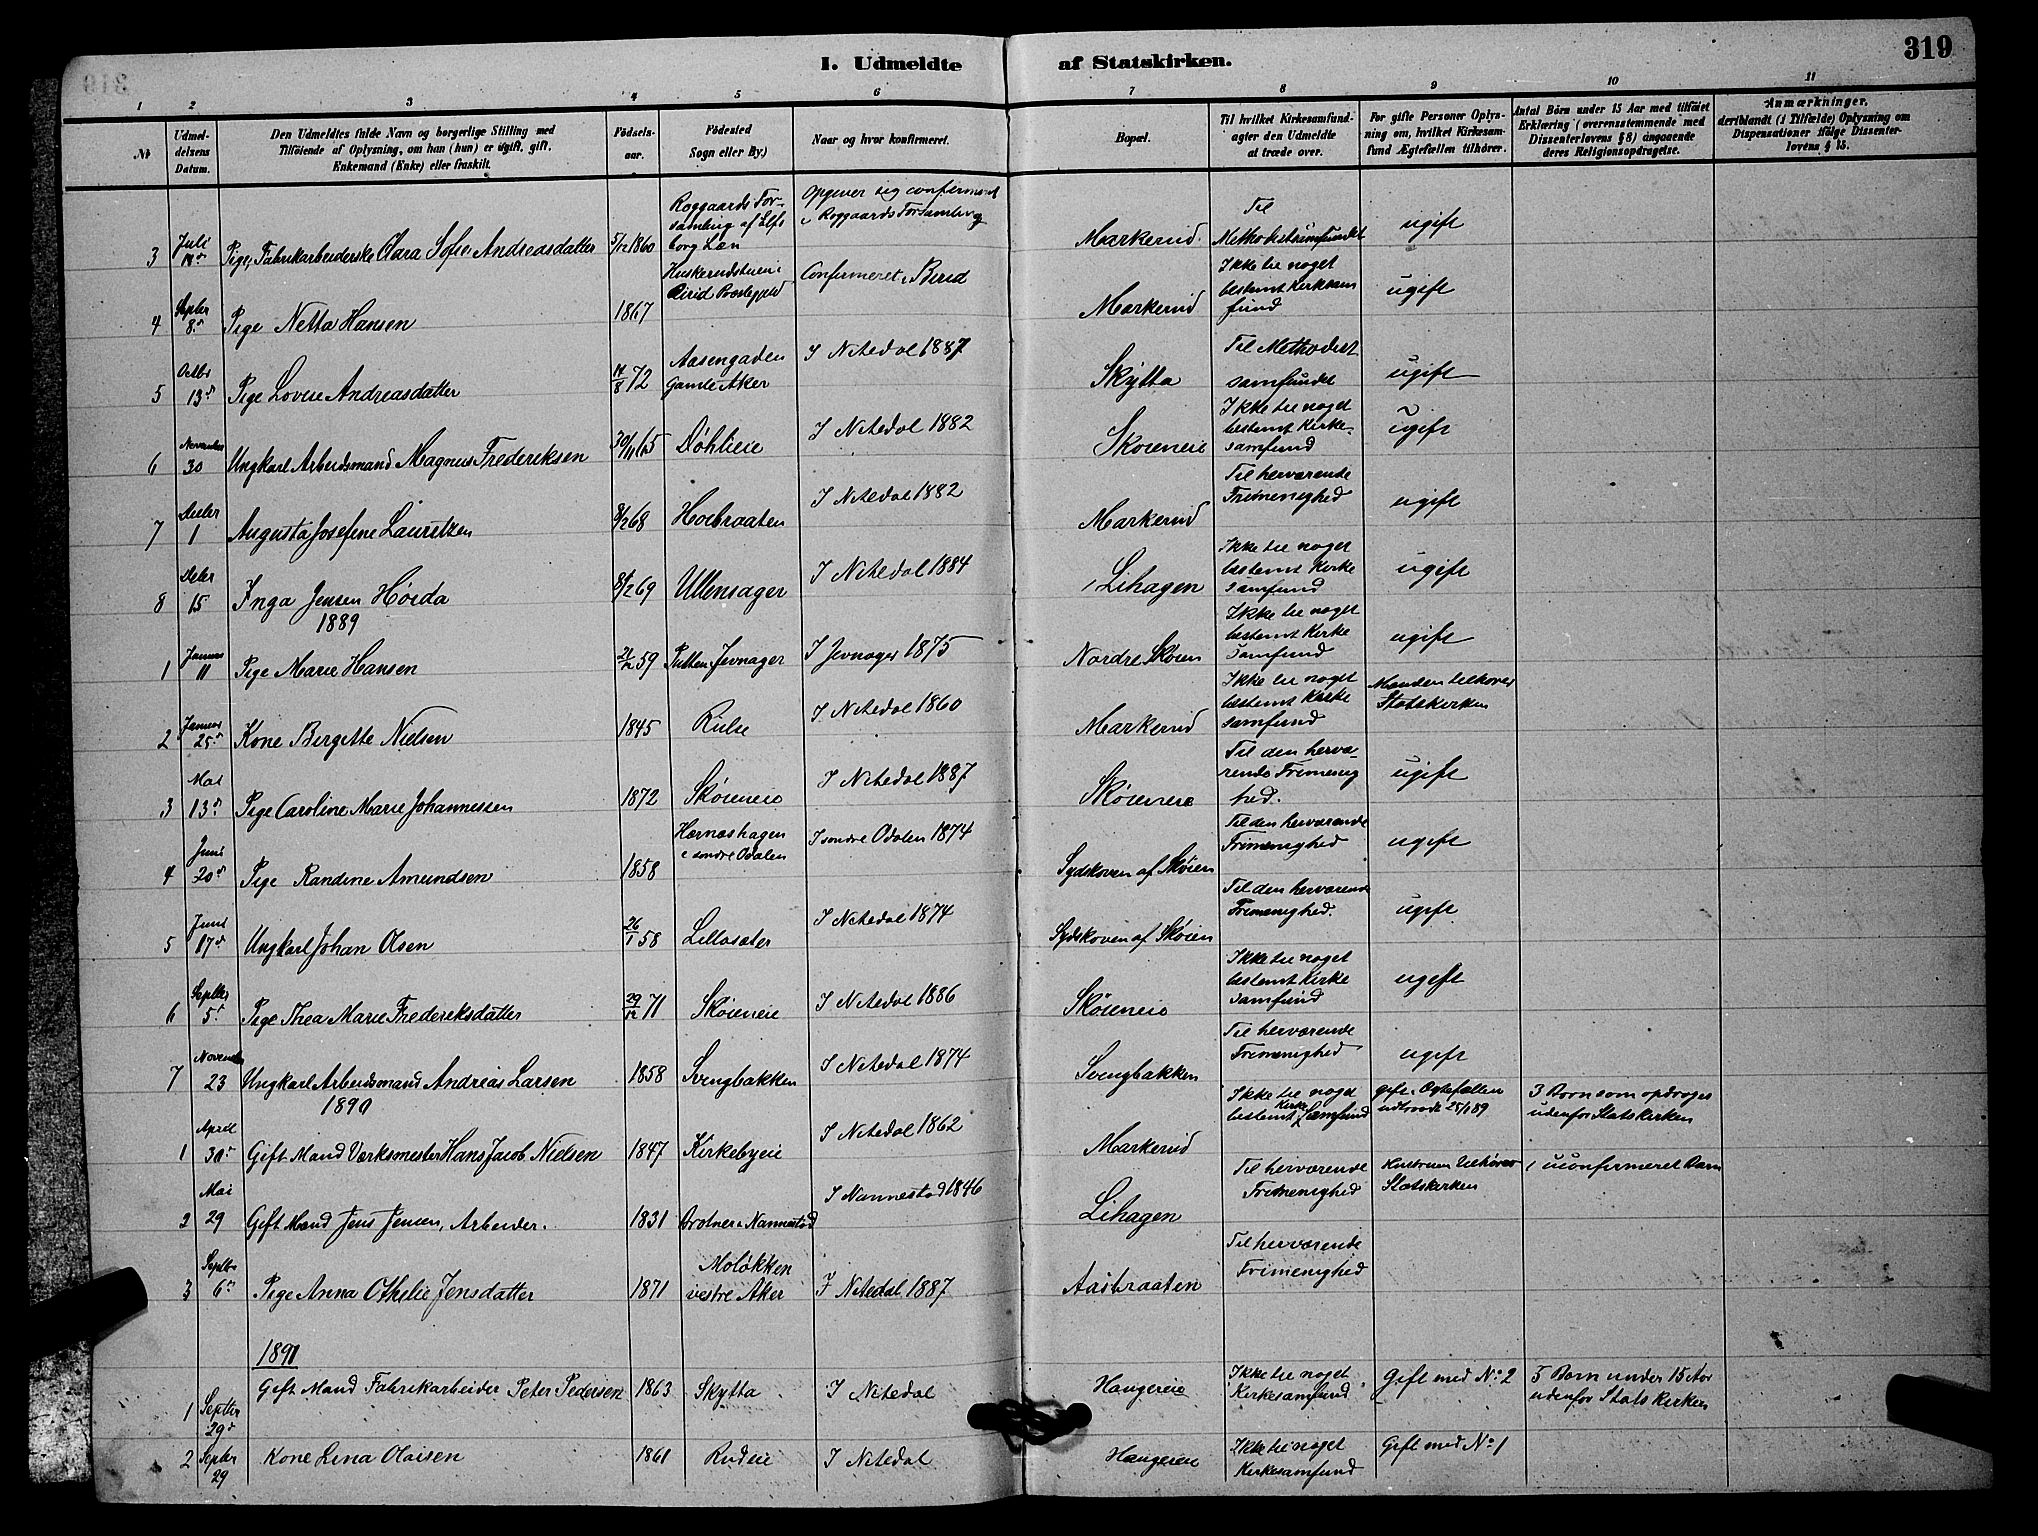 319
I. Udmeldte af Statskirken.
1 2 3 4 5 6 7 8 9 10 11
Nr.
Udmeldelsens Datum.
Den Udmeldtes fulde Navn og borgerlige Stilling med
Tilføiende af Oplysning, om han (hun) er ugift, gift,
Enkemand (Enke) eller fraskilt.
Fødselsaar.
Fødested
Sogn eller By.)
Naar og hvor konfirmeret.
Bopæl.
Til hvilket Kirkesamfund
agter den Udmeldte
at træde over.
For gifte Personer Oplysning
om, hvilket Kirkesamfund
Ægtefællen tilhører.
Antal Børn under 15 Aar med tilføiet
Erklæring (overensstemmende med
Dissenterlovens § 8) angaaende
deres Religionsopdragelse.
Anmærkninger,
deriblandt (i Tilfælde) Oplysning om
Dispensationer ifølge Dissenterlovens
§ 15.
3 Juli Pige, Fabrikarbeiderske Clara Sofie Andreasdatter 5/12 1860 Roggaards Forsamling af Elfsborg Læn Opgiver sig confirmeret i Roggaards Forsamling Markerud Til Methodistsamfundet ugift
4 Septbr 8de Pige Netta Hansen 1867 Birid Præstegjeld Confirmeret i Birid Markerud Ikke til noget bestemt Kirkesamfund ugift
5 Octbr 13de Pige Lovise Andreasdatter 72 Aasengaden Gamle Aker I Nitedal 1887 Skytta Til Methodistsamfundet ugift
6 November 30 Ungkarl Arbeidsmand Magnus Frederiksen 30/11 65 Døhlieie I Nitedal 1882 Skøieneie Ikke til noget bestemt Kirkesamfund ugift
7 Decbr 1 Augusta Josefine Lauritzen 68 Hoebraaten I Nitedal 1882 Markerud Til herværende Frimenighed ugift
8 Decbr 15 Inga Jensen Høida 8/2 69 Ullensager I Nitedal 1884 Lihagen Ikke til noget bestemt Kirkesamfund ugift
1889
1 Januar 11 Pige Marie Hansen 59 Putten Jevnager I Jevnager 1875 Nordre Skøien Ikke til noget bestemt Kirkesamfund ugift
2 Januar 25de Kone Birgitte Nielsen 1845 I Nitedal 1860 Markerud Ikke til noget bestemt Kirkesamfund Manden tilhører Statskirken
3 Mai 13de Pige Caroline Marie Johannessen 1872 Skøieneie I Nitedal 1887 Skøieneie Til den herværende Frimenighed. ugift
4 Juni 20de Pige Randine Amundsen 1858 Hernæshagen i søndre Odalen I søndre Odalen 1874 Sydskoven af Skøien Til den herværende Frimenighed ugift
5 Juni 17de Ungkarl Johan Olsen 26/1 58 Lillosæter I Nitedal 1874 Sydskoven af Skøien Til den herværende Frimenighed. ugift
6 Septbr 5te Pige Thea Marie Frederiksdatter 29/12 71 Skøieneie I Nitedal 1886 Skøieneie Ikke til noget bestemt Kirkesamfund ugift
7 November 23 Ungkarl Arbeidsmand Andreas Larsen 1858 Svengbakken I Nitedal 1874 Svengbakken Til herværende Frimenighed ugift
1890
1 April 30te Gift Mand Værksmester Hans Jacob Nielsen 1847 Kirkebyeie I Nitedal 1862 Markerud Ikke til noget bestemt Kirke Samfund gift. Ægtefællen udtraadt 25/1 89 3 Børn som opdrages udenfor Statskirken
2 Mai 29 Gift Mand Jens Jensen, Arbeider. 1831 Brotner i Nannestad I Nannestad 1846 Lihagen Til herværende Frimenighed Hustruen tilhører Statskirken 1 uconfirmeret Barn
3 Septbr 6te Pige Anna Othelie Jensdatter 1871 Moløkken vestre Aker I Nitedal 1887 Aasbraaten Til herværende Frimenighed
1891
1 Septbr 29de Gift Mand Fabrikarbeider Peter Pedersen 1863 Skytta I Nitedal Haugereie Ikke til noget Kirkesamfund Gift med No 2 5 Børn under 15 Aar udenfor Statskirken
2 Septbr 29 Kone Lina Olaisen 1861 Rudeie I Nitedal Haugereie Ikke til noget Kirkesamfund Gift med No 1